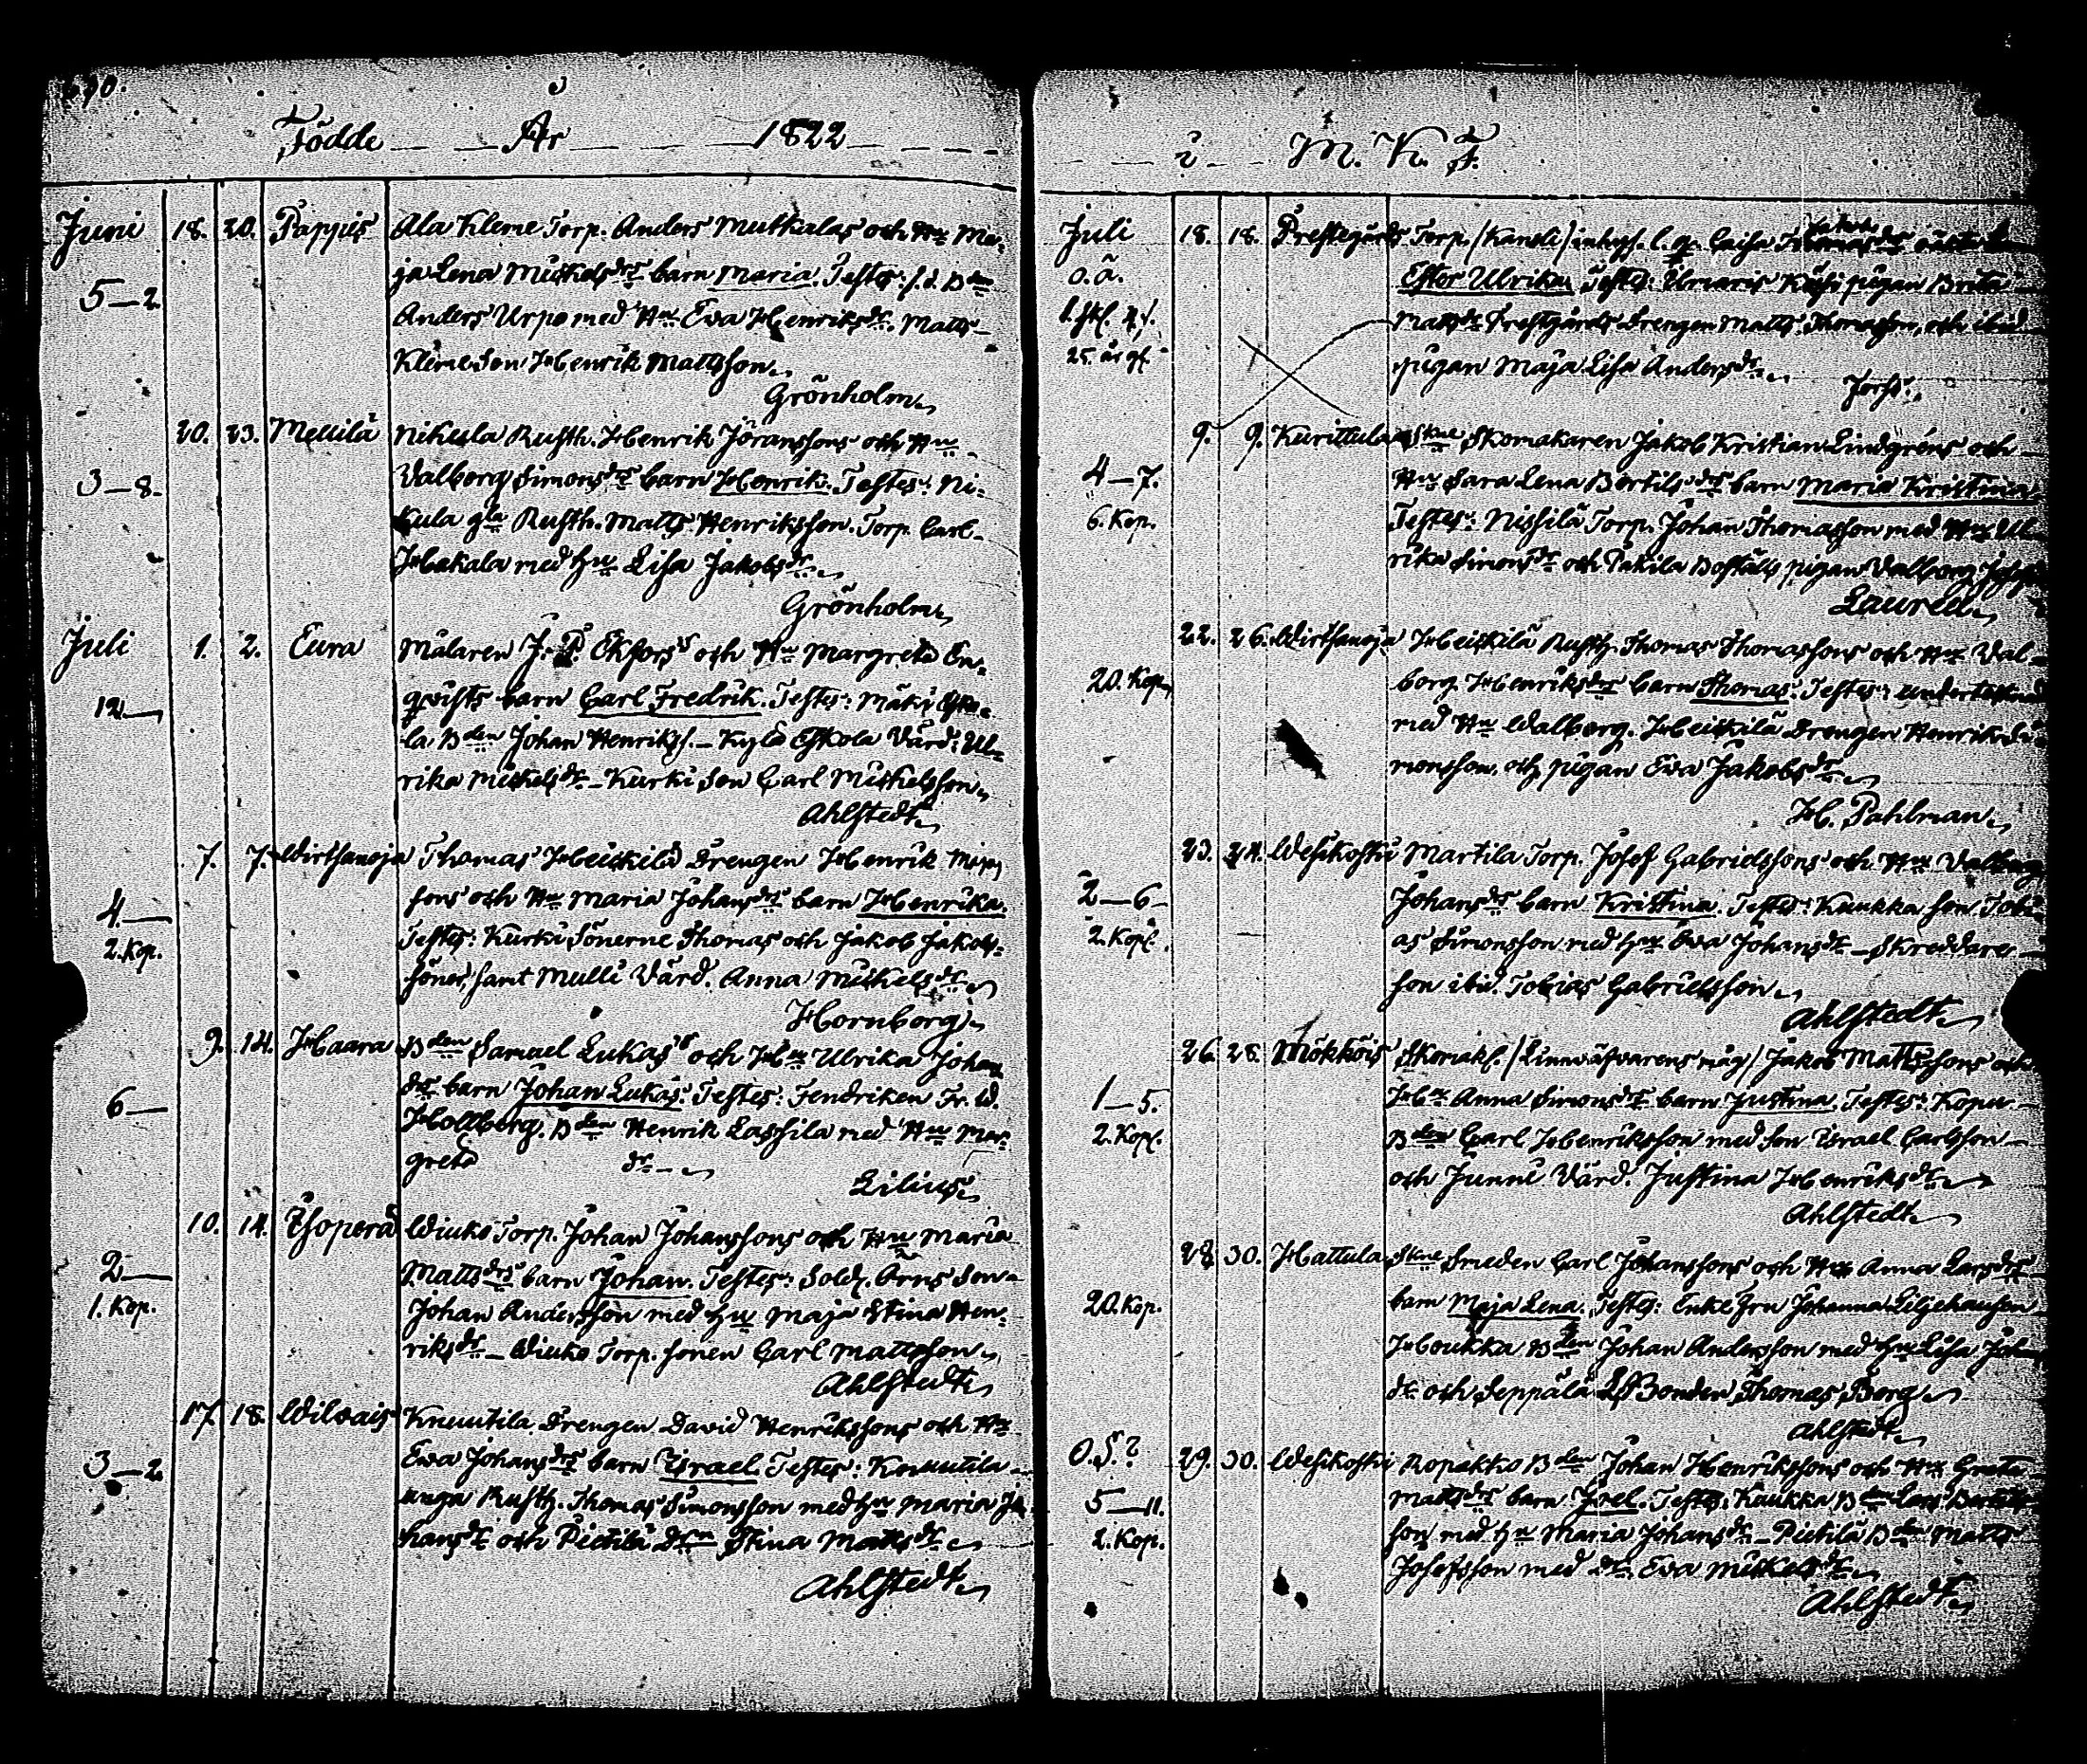 Födde År 1822
Juni 18. 20. Pappis Ala Kleme Torp. Anders Mutkalas och Hu Ma-
ja Lena Mickelsdrs barn Maria. Testes: f.d. Bden
5–2. Anders Urpo med Hu Eva Henriksdr. Matts
Kleme Son Henrik Mattsson
Grönholm
20. 23. Mellilä Nikula Rusth. Henrik Jöranssons och Hu
3–8. Valborg Simonsdrs barn Henrik. Testes: Ni-
kula gla Rusth. Matts Henriksson. Torp. Carl
Hakala med hu Lisa Jakobsdr
Grönholm
Juli 1. 2. Eura Målaren J. Ekfors och Hu Margreta En-
qvists barn Carl Fredrik. Testes: Mäki Esko-
12 la Bden Johan Henrikss. – Kylä Eskola Värd: Ul-
rika Mickelsdr – Kurki Son Carl Mickelsson
Ahlstedt
7. 7. Wirtsanoja Thomas Heickilä Drengen Henrik
sons och Hu Maria Johansdrs barn Henrika.
4 Testes: Kurki Sönerne Thomas och Jakob Jakobs-
2. Kop. söner, samt Mulli Värd. Anna Mickelsdr
Hornborg
9. 14. Haara Bden Samuel Lukas's och Hu Ulrika Johans
drs barn Johan Lukas. Testes: Fendriken Fr. W.
6 Hollberg. Bden Henrik Lassila med Hu Mar-
greta dr
Lilius
10. 14. Isoperä Wiuko Torp. Johan Johanssons och Hu Maria
2 Mattsdrs barn Johan. Testes: Sold. Orns Son
1. Kop. Johan Andersson med hu Maja Stina Hen-
riksdr – Wiuko Torp. sonen Carl Mattsson
Ahlstedt
17. 18. Wilvais Knuutila Drengen David Henrikssons och Hu
3–2. Eva Johansdrs barn Israel. Testes: Knuutila
unga Rusth. Thomas Simonsson med hu Maria Jo-
hansdr och Pietilä Stina Mattsdr
Ahlstedt
i M. K. F.
Juli 18. 18. Prestegårds Torp. /Kansli/ inhys. l. q. Caisa
o. ä. Ester Ulrika Testes: pigan Brita
Mattsdr Prestgårds Drengen Matts Thomasson, och ibid
25. år gl. pigan Maja Lisa Andersdr
9. 9. Kurittula Skne Skomakaren Jakob Kristian Lindgréns och
4–7. Hu Sara Lena Bertilsdrs barn Maria Kristina
6. Kop. Testes: Nissilä Torp. Johan Thomasson med Hu Ul-
rika Simonsdr och Pakila Boställs pigan Valborg
Laurell
22. 26. Wirtsanoja Heickilä Rusth. Thomas Thomassons och Hu Val-
20. Kop. borg Henriksdrs barn Thomas. Testes:
med Hu Walborg. Heickilä Drengen Henrik Si-
monsson, och pigan Eva Jakobsdr
H. Pahlman
23. 24. Wesikoski Martila Torp. Josef Gabrielssons och Hu Valborg
2–6 Johansdrs barn Kristina. Testes: Kuukka Son Tobi-
2. Kop. as Simonsson med hu Eva Johansdr – Skreddare
son ibid. Tobias Gabrielsson
Ahlstedt
26. 28. Mökköis Skomak. /Linnväfvarens måg/ Jakob Mattssons och
1–5. Hu Anna Simonsdrs barn Justina. Testes: Kopu
2. Kop. Bden Carl Henriksson med Son Israel Carlsson
och Junni Värd. Justina Henriksdr
Ahlstedt
28. 30. Hattula Skne Smeden Carl Johanssons och Hu Anna Larsdrs
20. Kop. barn Maja Lena. Testes: Enke Fru Johanna Liljehausen
Houkka Bden Johan Andersson med hu Lisa Joh
dr och Seppälä Bonden Thomas Borg
Ahlstedt
O.S.? 29. 30. Wesikoski Ropakko Bden Johan Henrikssons och Hu Greta
5–11. Mattsdrs barn Joel. Testes: Kuukka Bden Lars
2. Kop. son med hu Maria Johansdr – Pietilä Bden Matts
Josefsson med dr Eva Mickelsdr
Ahlstedt